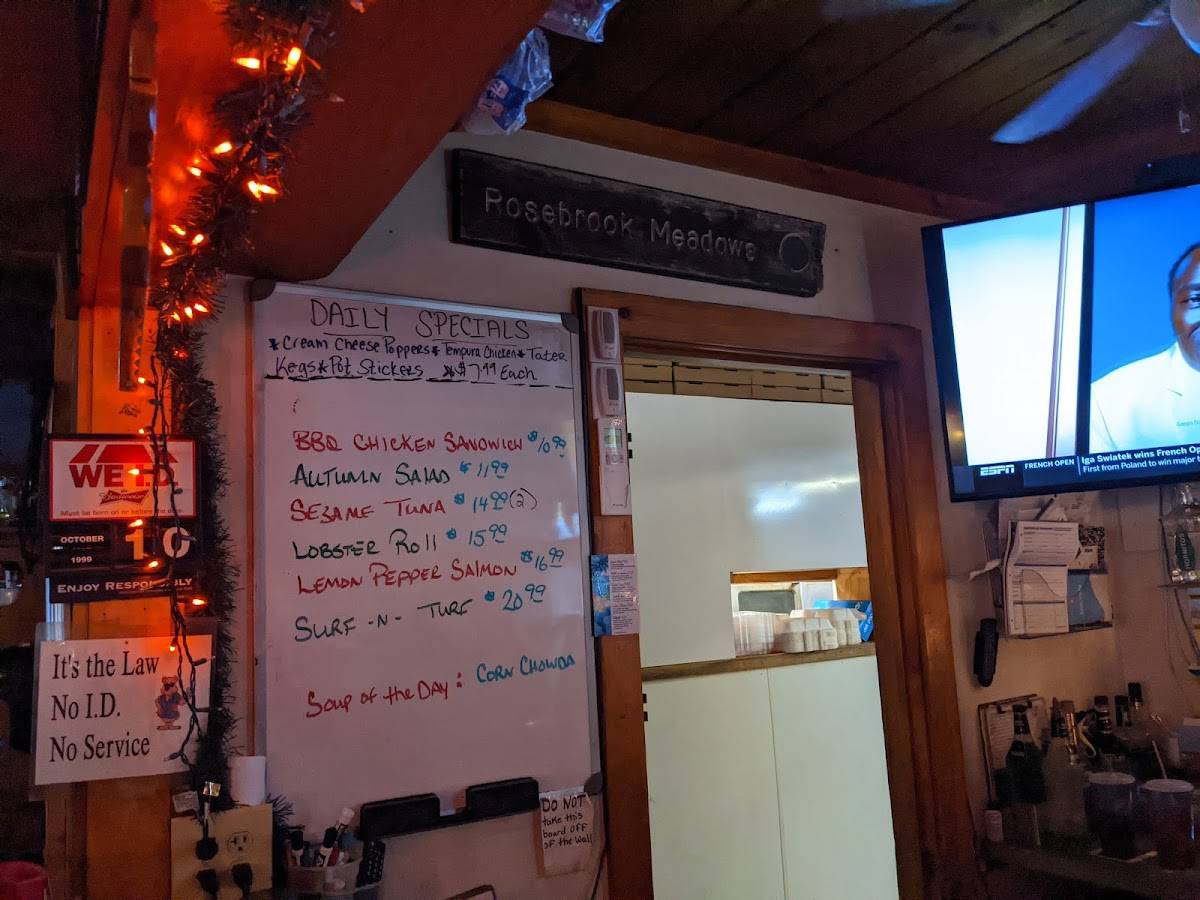 Rosebrook Meadows
DAILY SPECIALS
*Cream Cheese Poppers* Tempura Chicken* Tater
Kegs* Pot Stickers *$7.99 Each
BBQ CHICKEN SANDWICH $10.99
AUTUMN SALAD $11.99
SEZAME TUNA $14.99 (2)
LOBSTER ROLL $15.99
LEMON PEPPER SALMON $16.99
SURF -N- TURF $20.99
SOUP OF THE DAY: CORN CHOWDA
DO NOT
take this
board OFF
of the Wall
WE I.D.
Budweiser
Must be born on or before this date.
OCTOBER
10
1999
ENJOY RESPONSIBLY
It's the Law
No I.D.
No Service
ESPN
FRENCH OPEN
Iga Swiatek wins French Op
First from Poland to win major t
HORNITOS